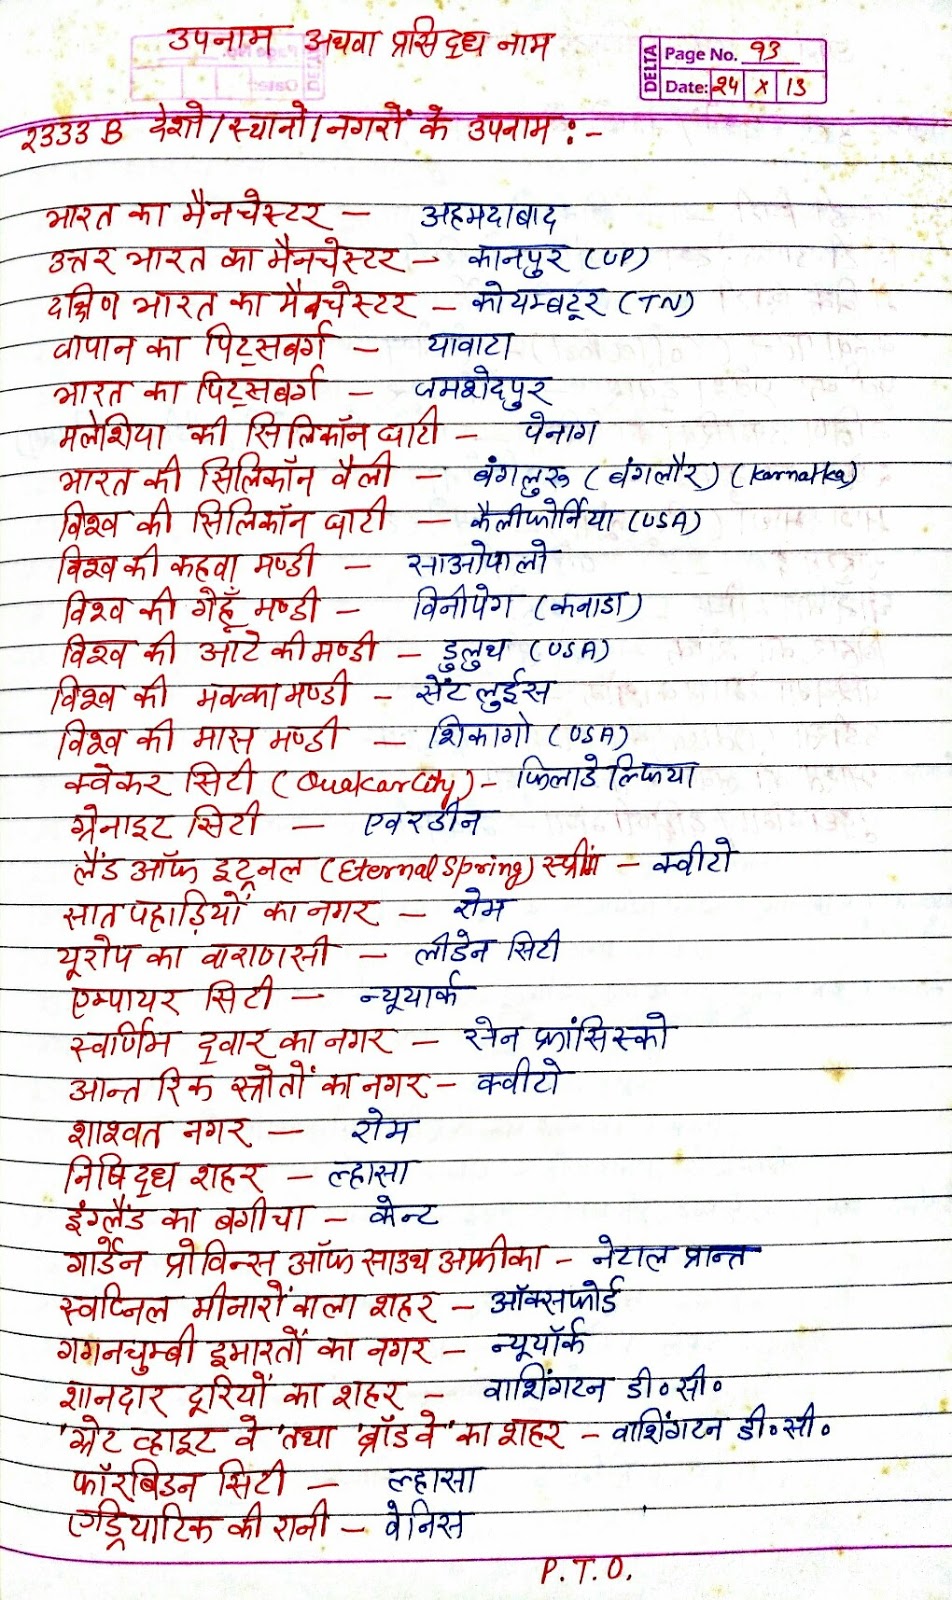 उपनाम अथवा प्रसिद्ध नाम
DELTA
Page No. 93
Date: 24 X 13
2333 B देशो/स्थानो/नगरों के उपनाम :-
भारत का मैनचेस्टर – अहमदाबाद
उत्तर भारत का मैनचेस्टर – कानपुर (UP)
दक्षिण भारत का मैनचेस्टर – कोयम्बटूर (TN)
जापान का पिट्सबर्ग – यावाटा
भारत का पिट्सबर्ग – जमशेदपुर
मलेशिया की सिलिकॉन घाटी – पेनाग
भारत की सिलिकॉन वैली – बंगलुरू (बंगलौर) (Karnatka)
विश्व की सिलिकॉन घाटी – कैलीफोर्निया (USA)
विश्व की कहवा मण्डी – साओपालो
विश्व की गेहूँ मण्डी – विनीपेग (कनाडा)
विश्व की आटे की मण्डी – डुलुथ (USA)
विश्व की मक्का मण्डी – सेंट लुईस
विश्व की मास मण्डी – शिकागो (USA)
क्वेकर सिटी (Quakar City) – फिलाडेल्फिया
ग्रेनाइट सिटी – एवरडीन
लैंड ऑफ इट्रनल (Eternal Spring) स्प्रींग – क्वीटो
सात पहाड़ियों का नगर – रोम
यूरोप का वाराणसी – लीडेन सिटी
एम्पायर सिटी – न्यूयार्क
स्वर्णिम द्वार का नगर – सेन फ्रांसिस्को
आन्तरिक स्त्रोतों का नगर – क्वीटो
शाश्वत नगर – रोम
निषिद्ध शहर – ल्हासा
इंग्लैंड का बगीचा – केन्ट
गार्डेन प्रोविन्स ऑफ साउथ अफ्रीका – नेटाल प्रान्त
स्वप्निल मीनारों वाला शहर – ऑक्सफोर्ड
गगनचुम्बी इमारतों का नगर – न्यूयॉर्क
शानदार दूरियों का शहर – वाशिंगटन डी॰सी॰
'ग्रेट व्हाइट वे' तथा 'ब्रॉडवे' का शहर – वाशिंगटन डी॰सी॰
फॉरबिडन सिटी – ल्हासा
एड्रियाटिक की रानी – वेनिस
P.T.O.